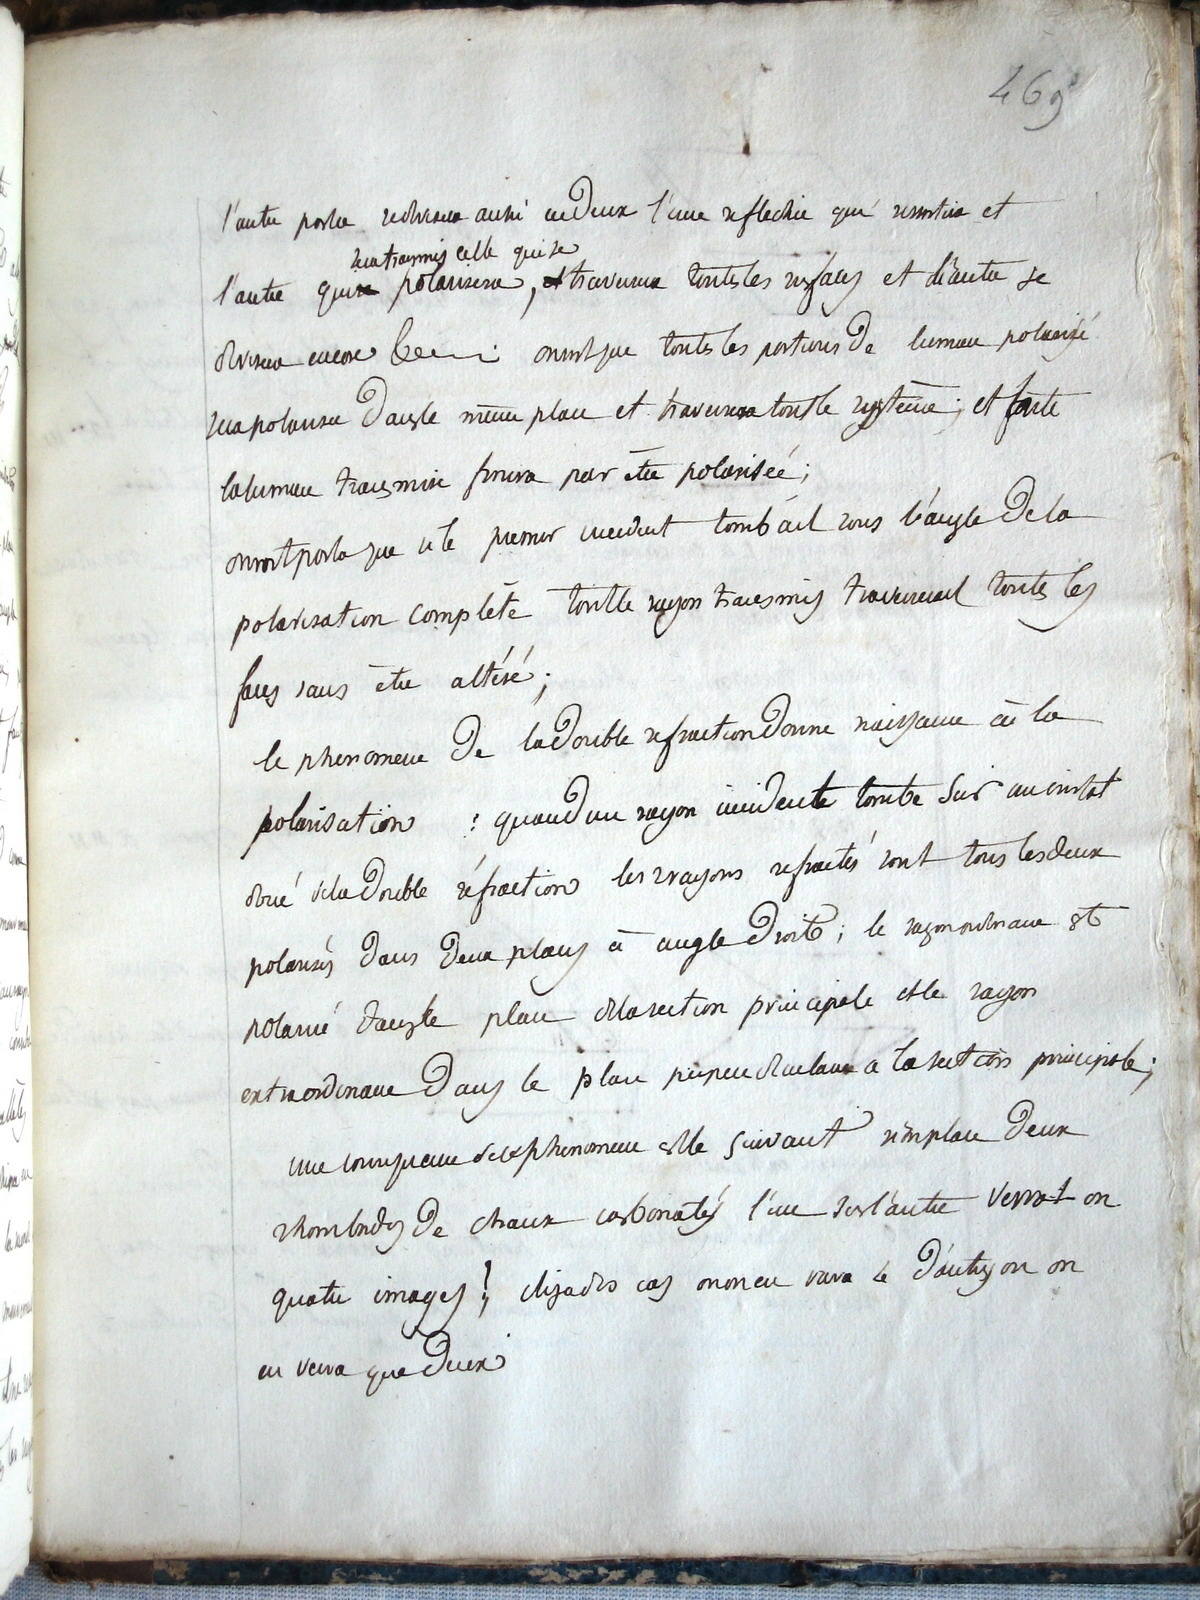 469
l'autre partie se divisera aussi en deux l'une reflechie qui ressortira et
sera transmis celle qui se
l'autre qui se polarisera, et traversera toutes les surfaces et l'autre se
divisera encore &c on voit que toutes les portions de lumiere polarisé
sera polarisée dans le même plan et traversera tout le systeme; et toute
la lumiere transmise finira par être polarisée;
on voit par la que si le premier incident tombait sous l'angle de la
polarisation complète tout le rayon transmis traverserait toutes les
faces sans être altéré;
le phenomene de la double refraction donne naissance à la
polarisation : quand un rayon incidente tombe sur un cristal
doué de la double réfraction les 2 rayons refractés sont tous les deux
polarisés dans deux plans à angle droit; le rayon ordinaire est
polarisé dans le plan de la section principale et le rayon
extraordinaire dans le plan perpendiculaire a la section principale;
une consequence de ce phenomene est le suivant si on place deux
rhomboides de chaux carbonatés l'une sur l'autre verrat on
quatre images? il y a des cas on en verra 4 d'autres ou on
en verra que deux